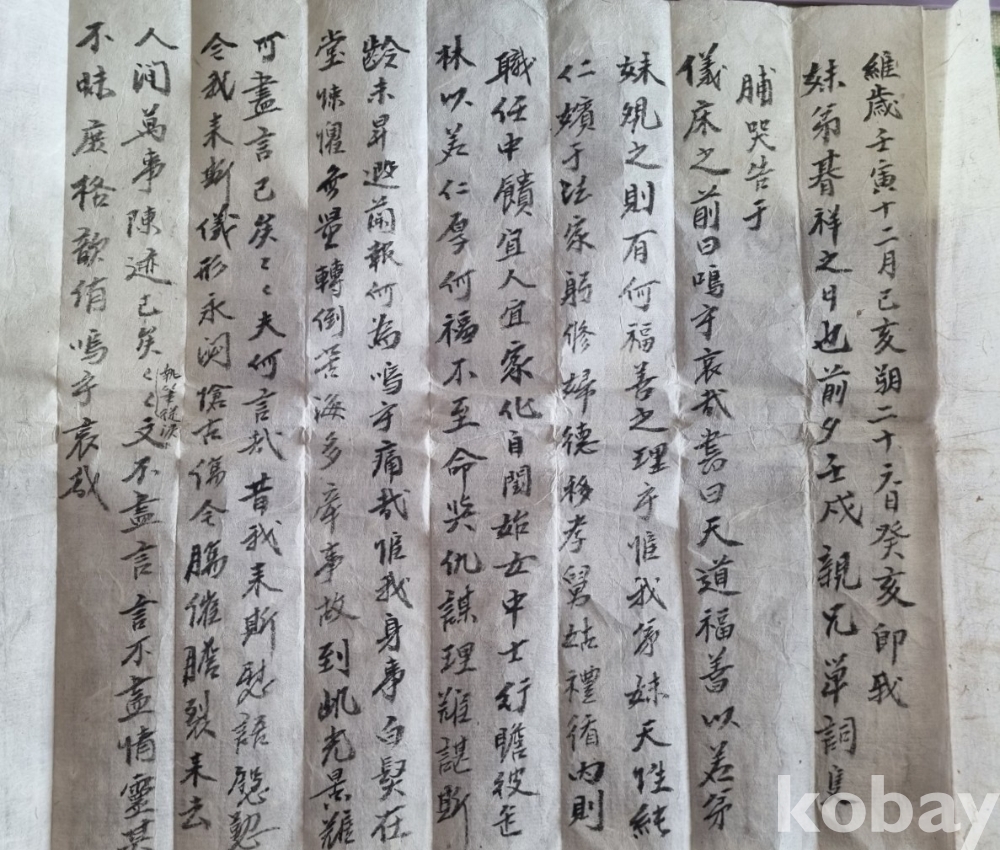 維歲壬寅十二月己亥朔二十五日癸亥即我
妹弟朞祥之日也前夕壬戌親兄單詞隻
脯哭告于
儀床之前曰嗚乎哀哉書曰天道福善以若弟
妹覌之則有何福善之理乎惟我弟妹天性純
仁嬪于法家躬修婦德移孝舅姑禮循內則
職任中饋宜人宜家化自閨始女中士行瞻彼
林以若仁厚何福不至命與仇謀理難諶斯
齡未昇遐啇報何為嗚乎痛哉惟我身事白髮在
堂悚懼無量轉倒苦海多牽事故到此光景難
可盡言已矣〻〻夫何言哉昔我來斯慰語慇懃
今我來斯儀形永閟愴古傷今膓催膽裂來去
人間萬事陳迹已矣〻〻文不盡言言不盡情靈其
執筆
不昧庶格歆侑嗚乎哀哉
kobay